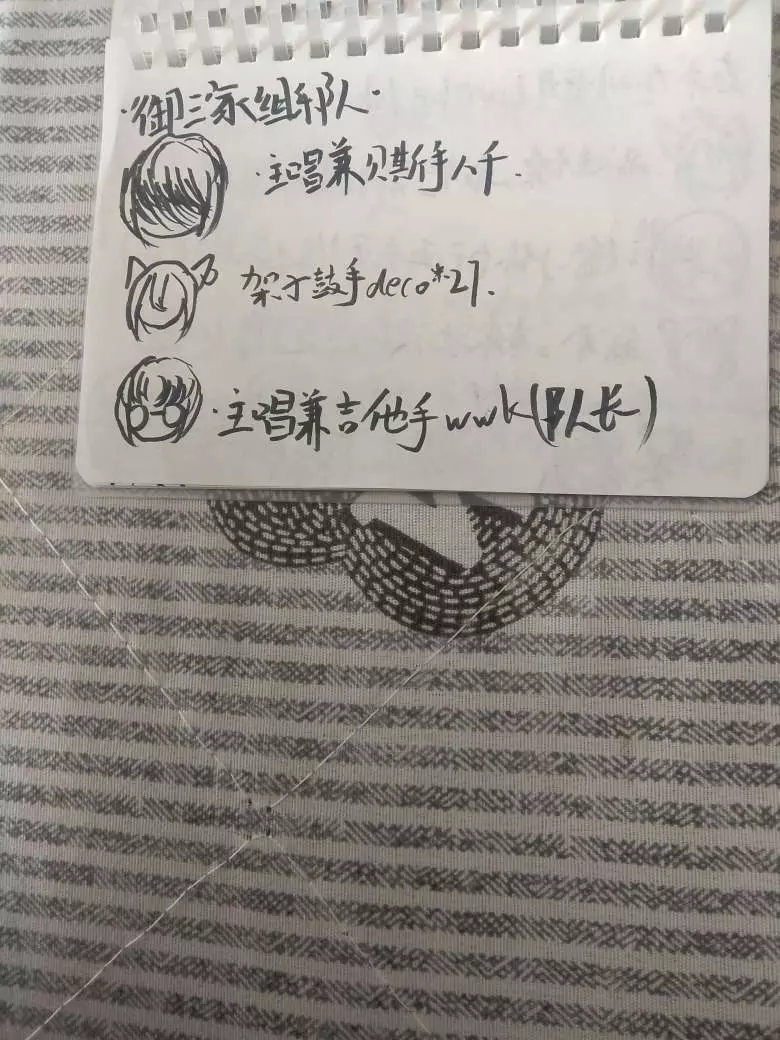 ·御三家组队·
·主唱兼贝斯手人千.
架子鼓手deco*27.
·主唱兼吉他手wwk(队长)